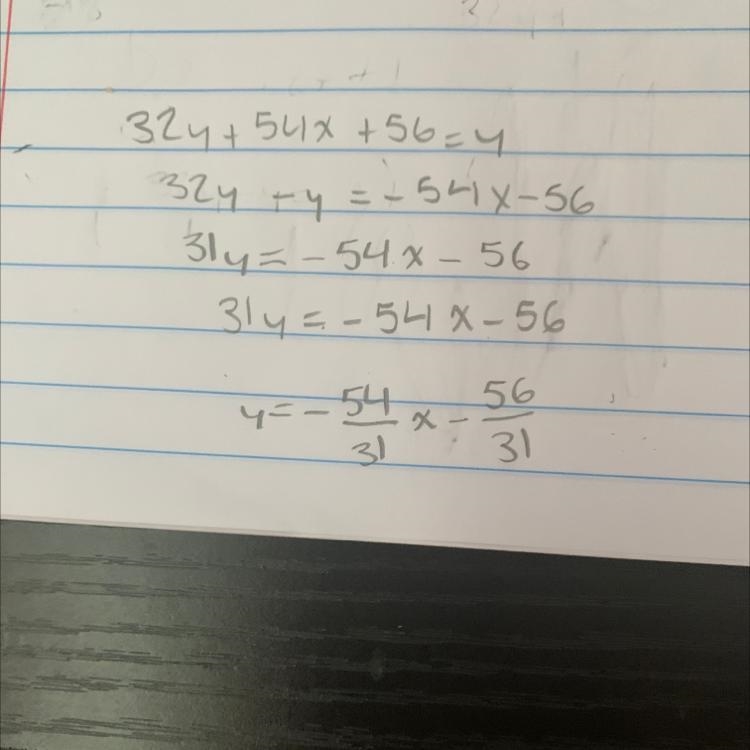 32y + 54x + 56 = y
32y - y = - 54x - 56
31y = - 54x - 56
31y = - 54x - 56
y = - 54/31 x - 56/31